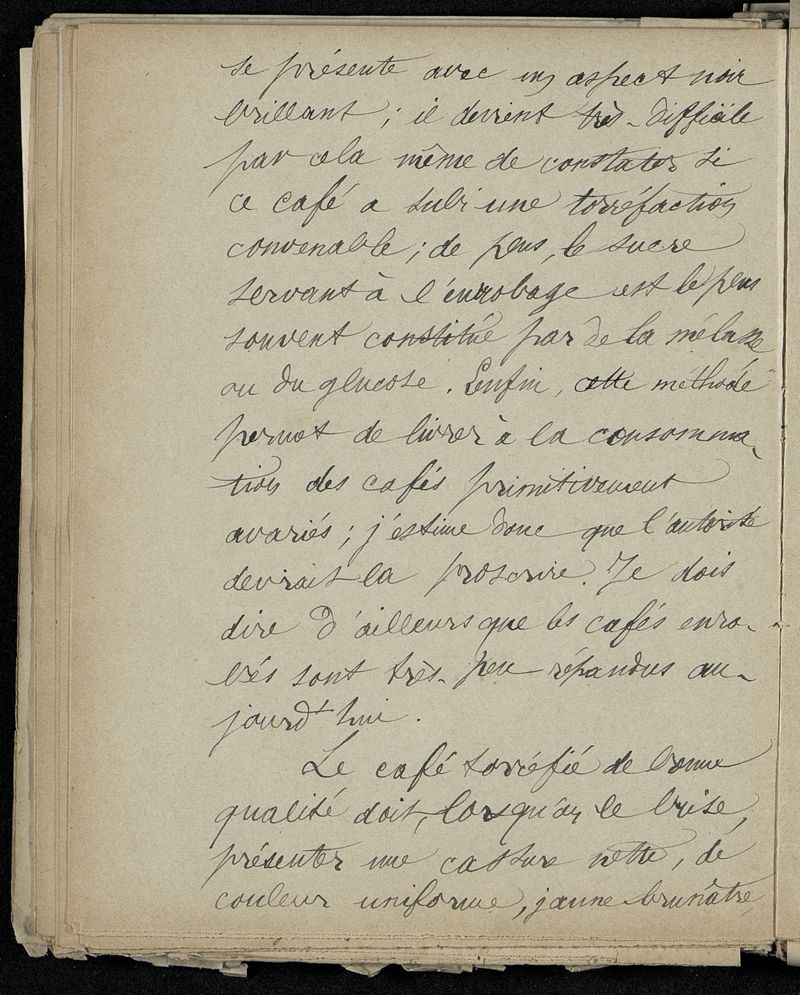 se présente avec un aspect noir
brillant ; il devient très-difficile
par cela même de constater si
ce café a subi une torréfaction
convenable ; de plus, le sucre
servant à l'enrobage est le plus
souvent constitué par de la mélasse
ou du glucose. Enfin, cette méthode
permet de livrer à la consomma-
tion des cafés primitivement
avariés ; j'estime donc que l'autorité
devrait la proscrire. Je dois
dire d'ailleurs que les cafés enro-
bés sont très-peu répandus au-
jourd'hui.
Le café torréfié de bonne
qualité doit, lorsqu'on le brise,
présenter une cassure nette, de
couleur uniforme, jaune brunâtre,